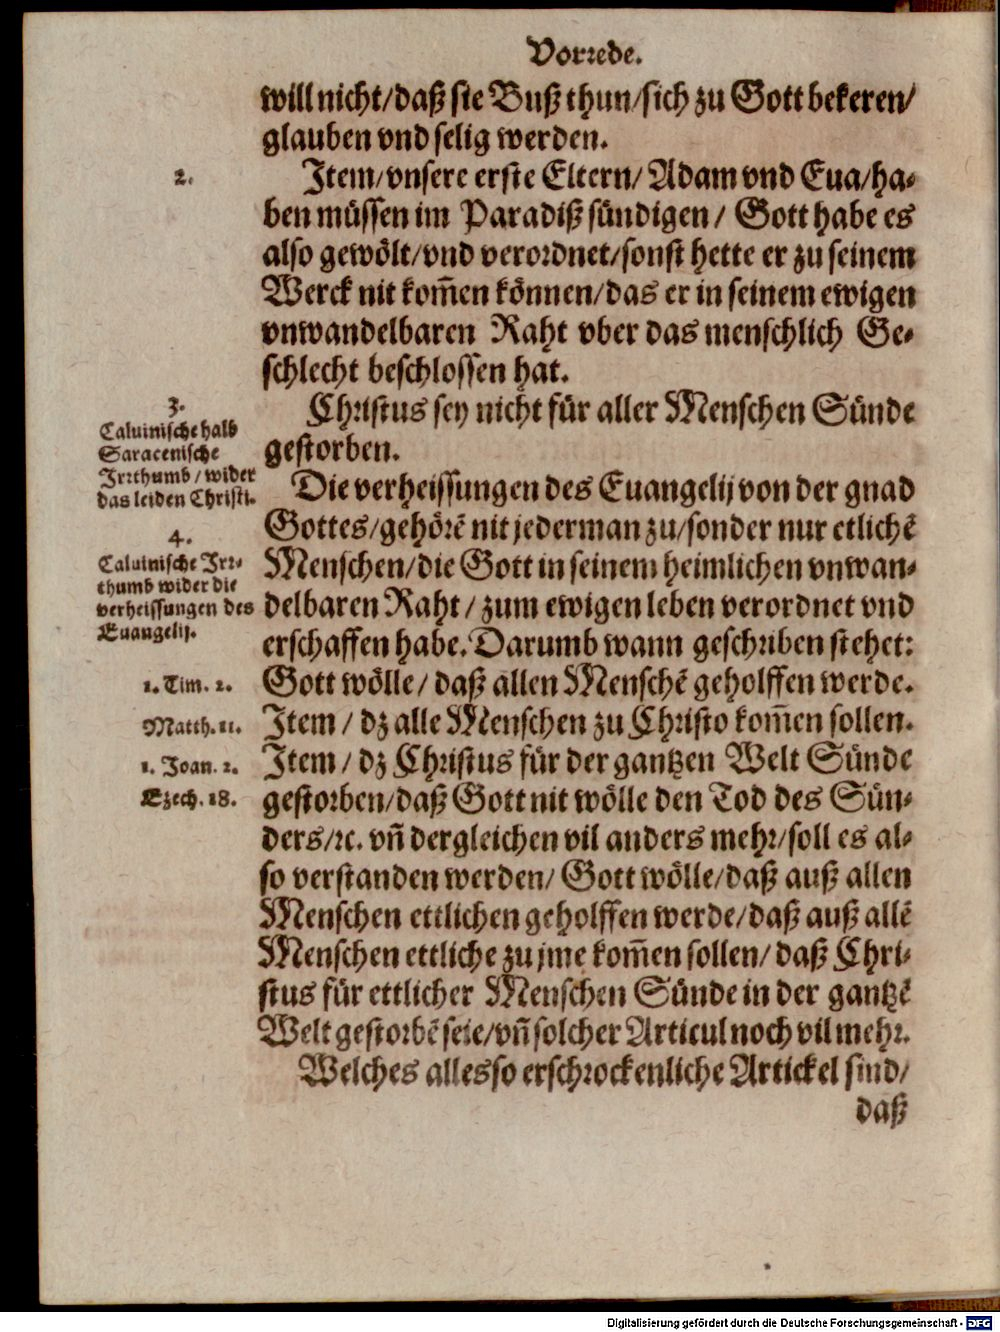 Vorrede.
will nicht/daß sie Buß thun/sich zu Gott bekeren/
glauben vnd selig werden.
2.
Item/vnsere erste Eltern/ Adam vnd Eua/ha-
ben müssen im Paradiß sündigen/ Gott habe es
also gewölt/vnd verordnet/sonst hette er zu seinem
Werck nit kom̄en können/das er in seinem ewigen
vnwandelbaren Raht vber das menschlich Ge-
schlecht beschlossen hat.
3.
Caluinische halb
Saracenische
Irrthumb/wider
das leiden Christi.
Christus sey nicht für aller Menschen Sünde
gestorben.
4.
Caluinische Irr-
thumb wider die
verheissungen des
Euangelij.
Die verheissungen des Euangelij von der gnad
Gottes/gehörẽ nit jederman zu/sonder nur etlichẽ
Menschen/die Gott in seinem heimlichen vnwan-
delbaren Raht/zum ewigen leben verordnet vnd
erschaffen habe. Darumb wann geschriben stehet:
1. Tim. 2.
Gott wölle/ daß allen Menschẽ geholffen werde.
Matth. 11.
Item/ dz alle Menschen zu Christo kom̄en sollen.
1. Joan. 2.
Item/ dz Christus für der gantzen Welt Sünde
Ezech. 18.
gestorben/daß Gott nit wölle den Tod des Sün-
ders/ꝛc. vn̄ dergleichen vil anders mehr/soll es al-
so verstanden werden/ Gott wölle/daß auß allen
Menschen ettlichen geholffen werde/daß auß allẽ
Menschen ettliche zu jme kom̄en sollen/ daß Chri-
stus für ettlicher Menschen Sünde in der gantzẽ
Welt gestorbẽ seie/vn̄ solcher Articul noch vil mehr.
Welches alles so erschrockenliche Artickel sind/
daß
Digitalisierung gefördert durch die Deutsche Forschungsgemeinschaft - DFG